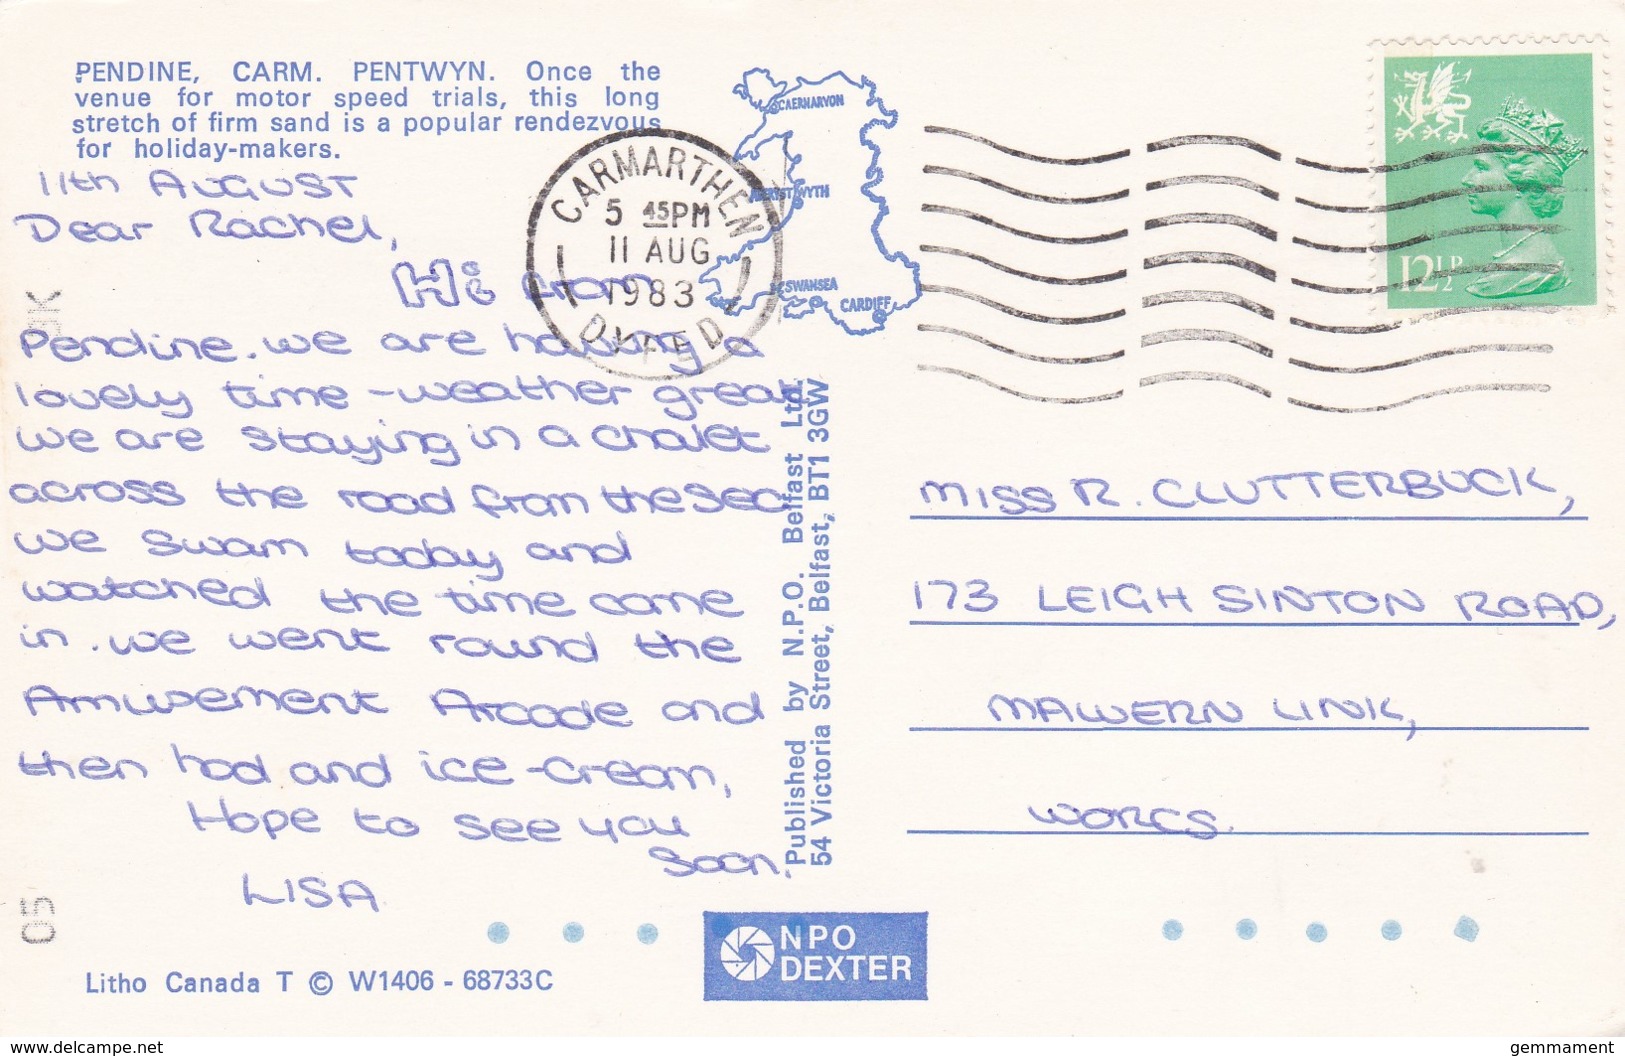 PENDINE, CARM. PENTWYN. Once the
venue for motor speed trials, this long
stretch of firm sand is a popular rendezvous
for holiday-makers.
11th AUGUST
Dear Rachel,
Hi from
Pendine. we are having a
lovely time - weather great.
we are staying in a chalet
across the road from the sea.
we swam today and
watched the time come
in. we went round the
Amusement Arcade and
then had and ice-cream,
Hope to see you
soon.
LISA
Litho Canada T © W1406 - 68733C
05
NPO
DEXTER
Published by N.P.O. Belfast Ltd.
54 Victoria Street, Belfast, BT1 3GW
CAERNARVON
SWANSEA
CARDIFF
CARMARTHEN
5 45PM
11 AUG
1983
DYFED
12½P
MISS R. CLUTTERBUCK,
173 LEIGH SINTON ROAD,
MALVERN LINK,
WORCS.
www.delcampe.net
gemmament